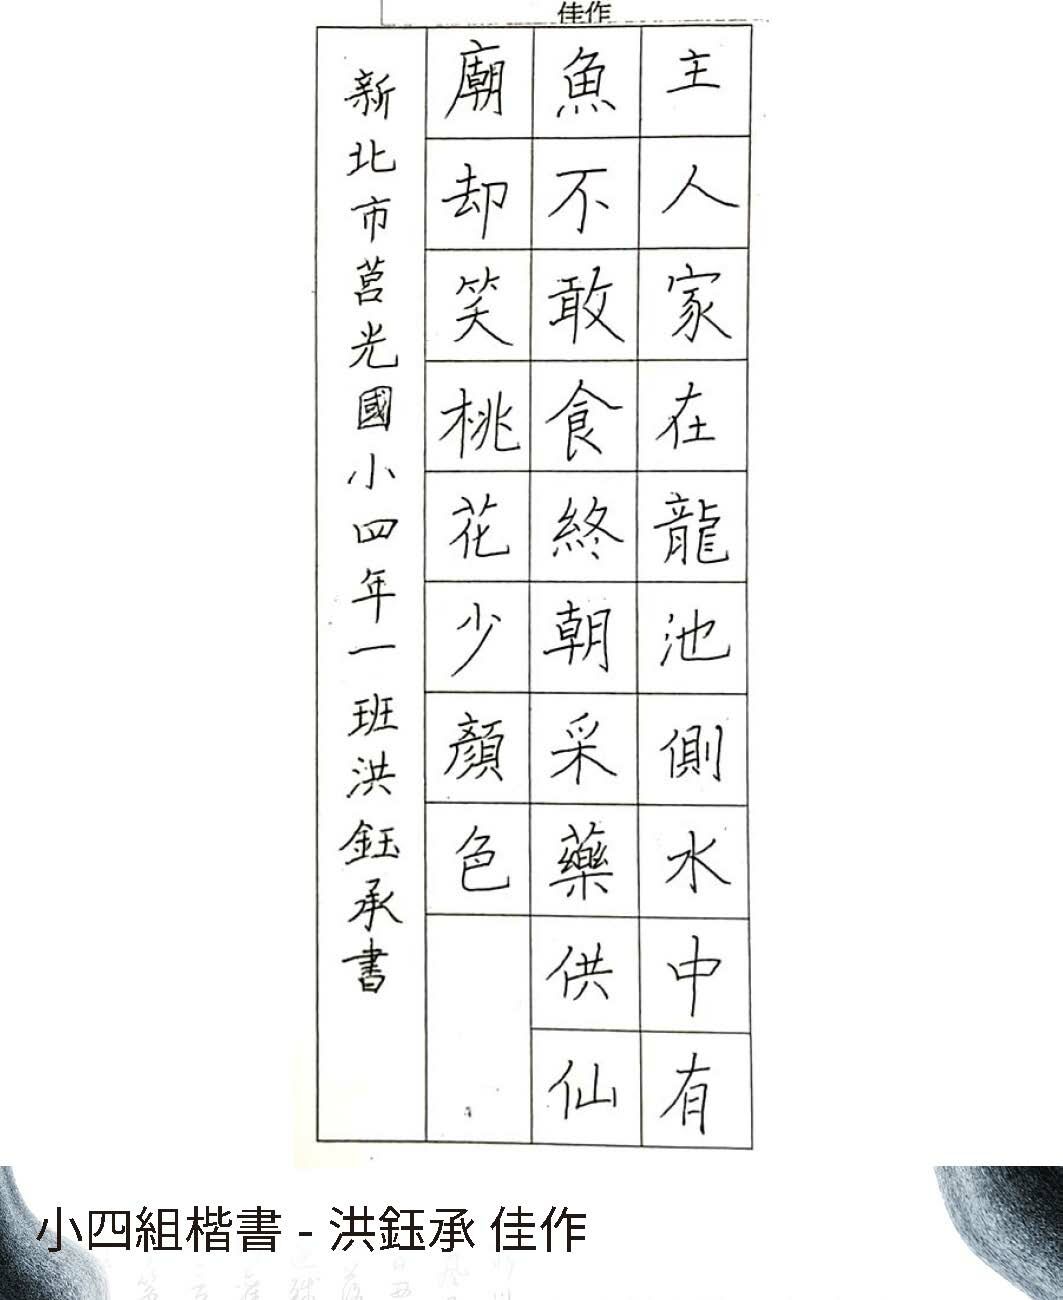 佳作
主人家在龍池側水中有
魚不敢食終朝采藥供仙
廟却笑桃花少顏色
新北市莒光國小四年一班洪鈺承書
小四組楷書 - 洪鈺承 佳作